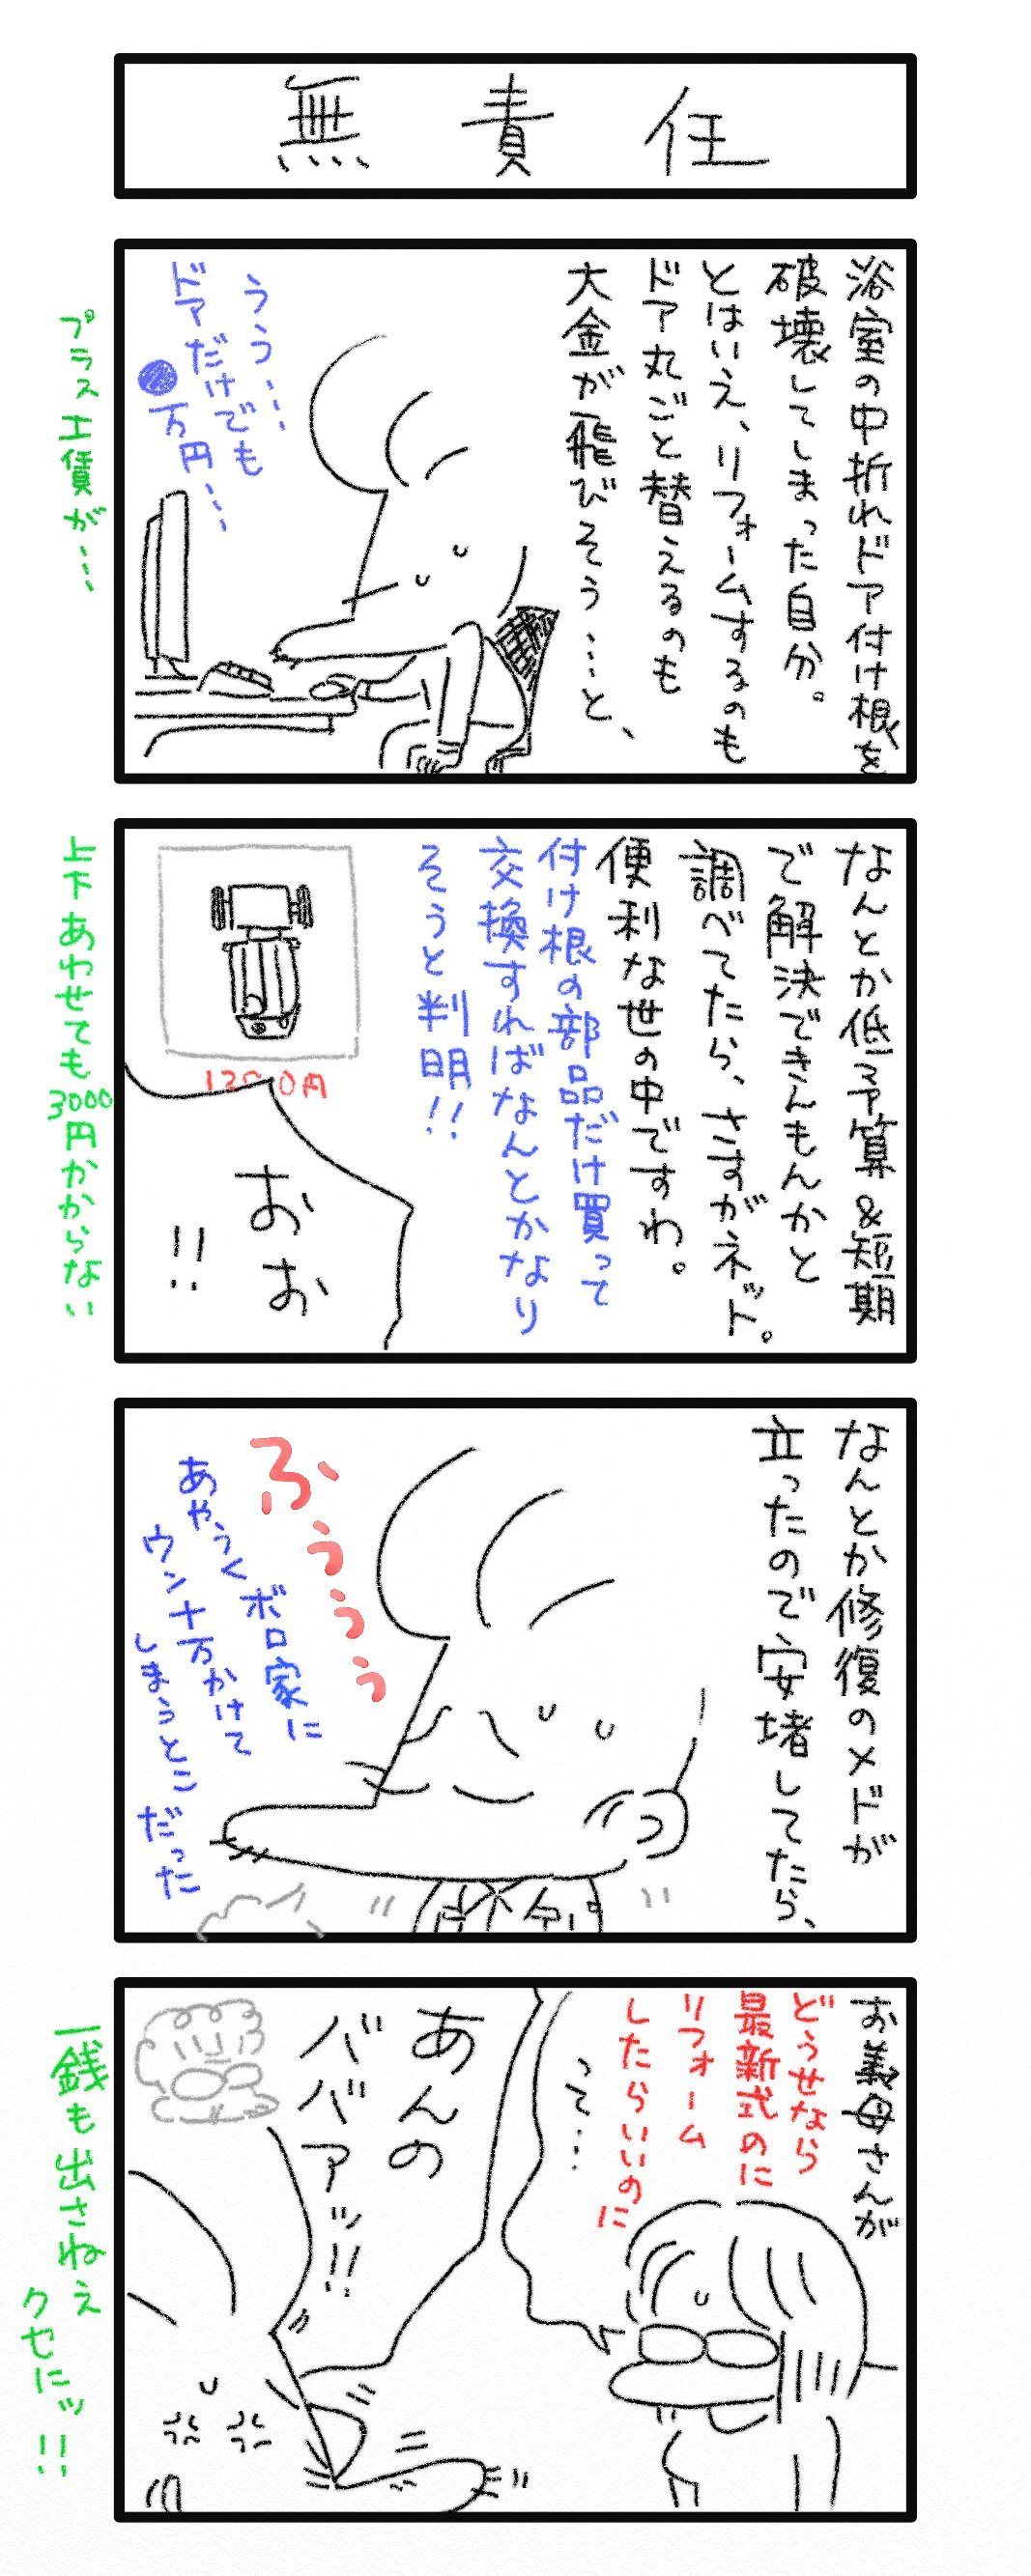 無責任
浴室の中折れドア付け根を
破壊してしまった自分。
とはいえ、リフォームするのも
ドア丸ごと替えるのも
大金が飛びそう…と、
うう…
ドアだけでも
●万円…
プラス工賃が…
なんとか低予算&短期
で解決できんもんかと
調べてたら、さすがネット。
便利な世の中ですわ。
付け根の部品だけ買って
交換すればなんとかなり
そうと判明!!
おお
!!
上下あわせても3000円かからない
なんとか修復のメドが
立ったので安堵してたら、
ふぅぅぅ
あやうくボロ家に
ウン十万かけて
しまうとこだった
お義母さんが
どうせなら
最新式のに
リフォーム
したらいいのに
って…
あんの
ババアッ!!
一銭も出さねえ
クセにッ!!